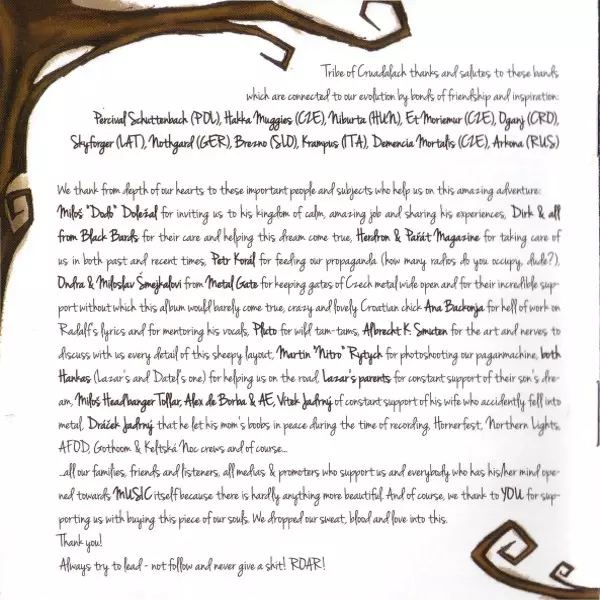 Tribe of Cruadalach thanks and salutes to these bands
which are connected to our evolution by bonds of friendship and inspiration:
Percival Schuttenbach (POL), Hakka Muggies (CZE), Niburta (HUN), Et Moriemur (CZE), Oganj (CRO),
Skyforger (LAT), Nothgard (GER), Brezno (SLO), Krampus (ITA), Demencia Mortalis (CZE), Arkona (RUS)
We thank from depth of our hearts to these important people and subjects who help us on this amazing adventure:
Miloš "Dodo" Doležal for inviting us to his kingdom of calm, amazing job and sharing his experiences, Dirk & all
from Black Bards for their care and helping this dream come true, Herdron & Pařát Magazine for taking care of
us in both past and recent times, Petr Korál for feeding our propaganda (how many radios do you occupy, dude?),
Ondra & Miloslav Šmejkalovi from Metal Gate for keeping gates of Czech metal wide open and for their incredible sup-
port without which this album would barely come true, crazy and lovely Croatian chick Ana Backonja for hell of work on
Radalf's lyrics and for mentoring his vocals, Pluto for wild tam-tams, Albrecht K. Smuten for the art and nerves to
discuss with us every detail of this sheepy layout, Martin "Nitro" Rytych for photoshooting our paganmachine, both
Hankas (Lazar's and Datel's one) for helping us on the road, Lazar's parents for constant support of their son's dre-
am, Miloš Headbanger Tollar, Alex de Borba & AE, Vítek Jadrný of constant support of his wife who accidently fell into
metal, Dráček Jadrný that he let his mom's boobs in peace during the time of recording, Hornerfest, Northern Lights,
AFOD, Gothoom & Keltská Noc crews and of course...
...all our families, friends and listeners, all medias & promoters who support us and everybody who has his/her mind ope-
ned towards MUSIC itself because there is hardly anything more beautiful. And of course, we thank to YOU for sup-
porting us with buying this piece of our souls. We dropped our sweat, blood and love into this.
Thank you!
Always try to lead - not follow and never give a shit! ROAR!